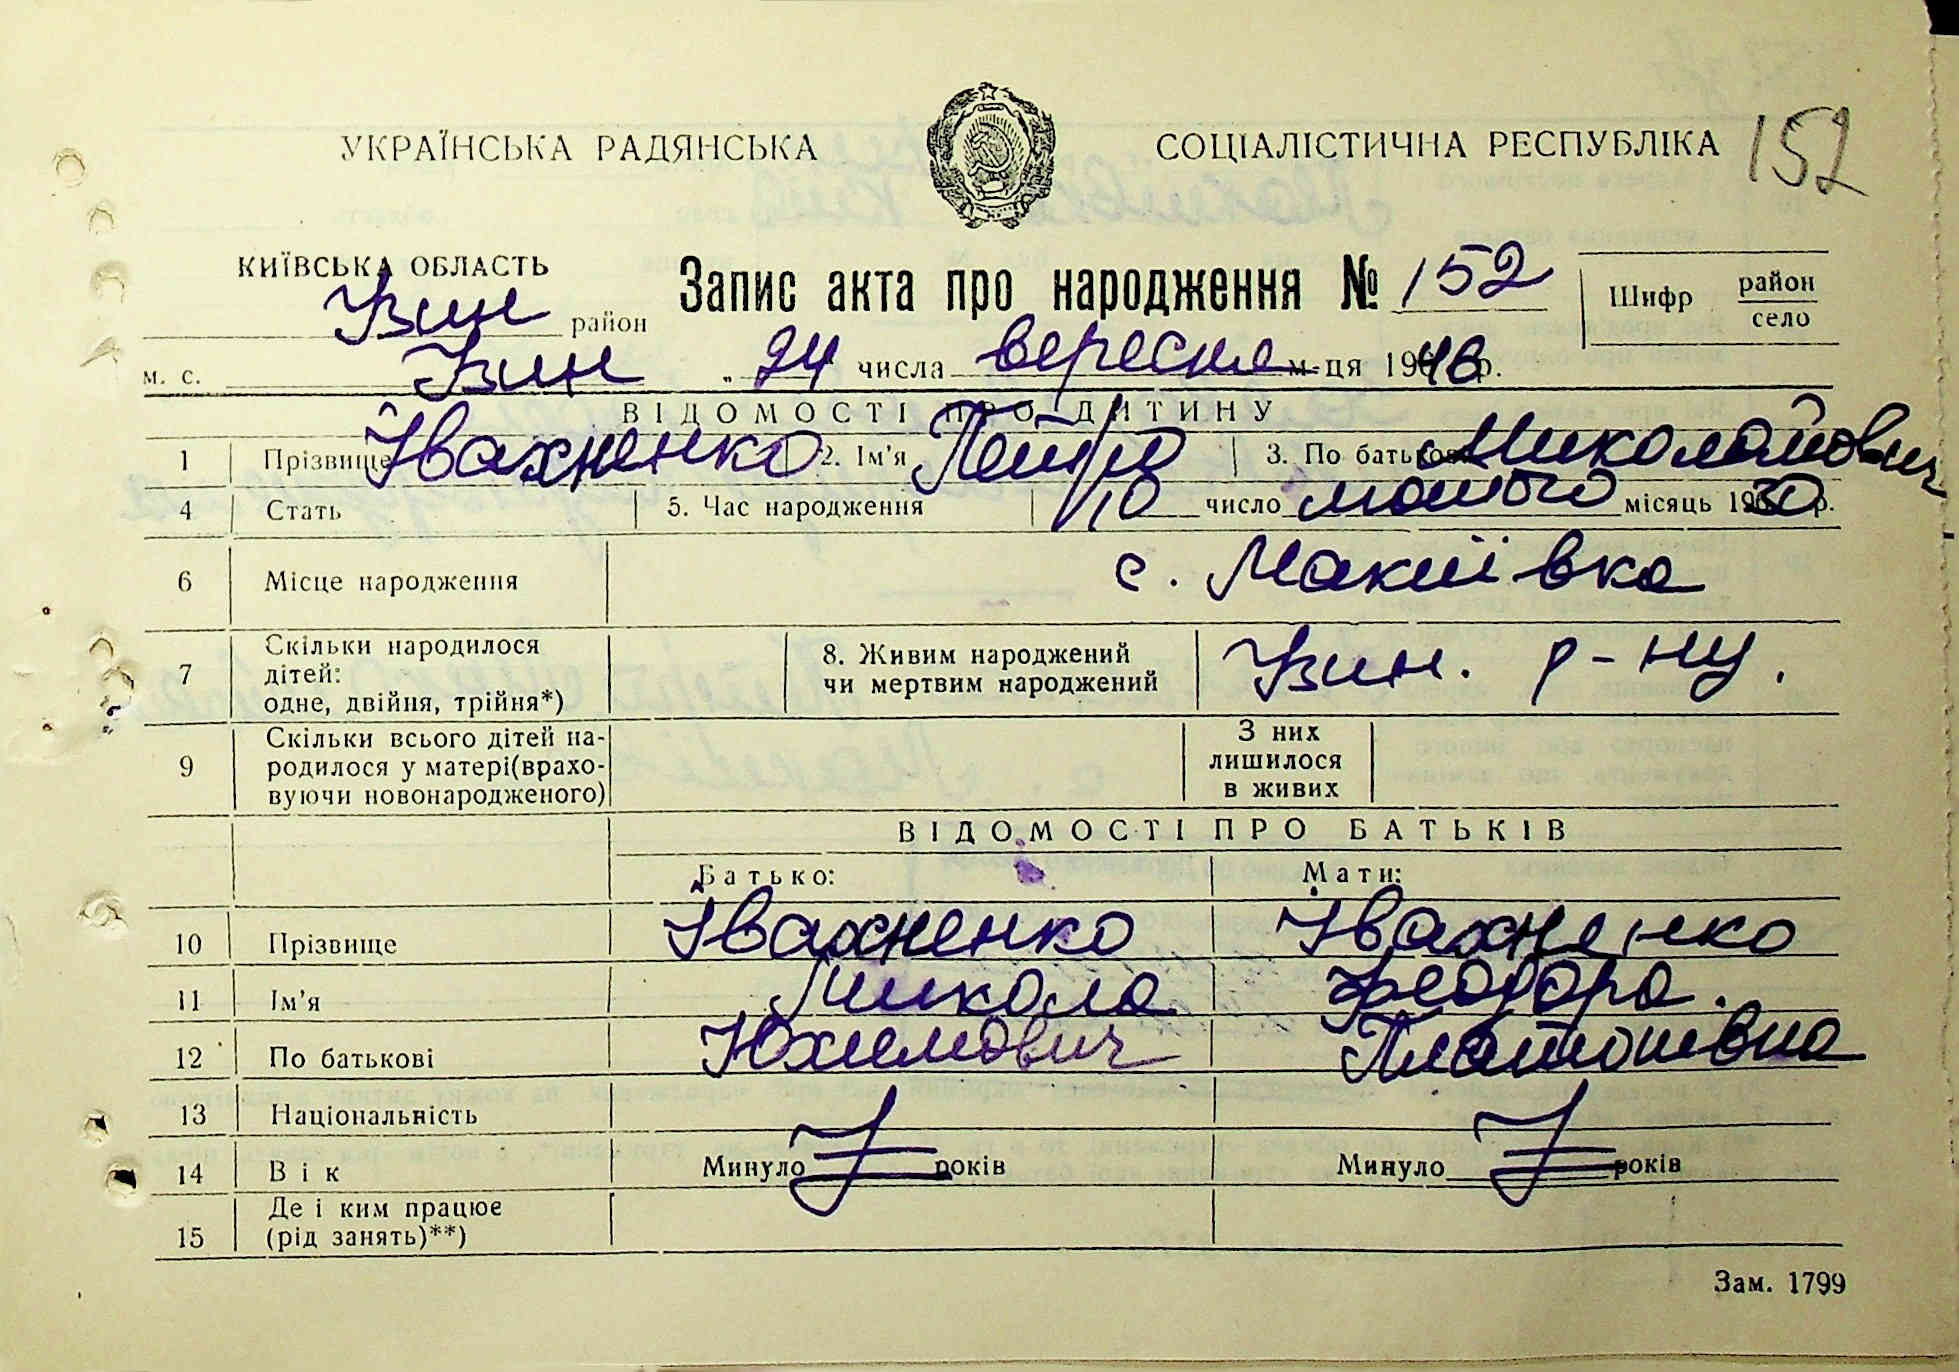 152
УКРАЇНСЬКА РАДЯНСЬКА СОЦІАЛІСТИЧНА РЕСПУБЛІКА
КИЇВСЬКА ОБЛАСТЬ
Узин район
Запис акта про народження № 152
Шифр район село
м. с. Узин „24 числа вересня м-ця 1946 р.
ВІДОМОСТІ ПРО ДИТИНУ
1 Прізвище Івахненко 2. Ім'я Петро 3. По батькові Миколайович
4 Стать 5. Час народження 10 число лютого місяць 1930 р.
6 Місце народження с. Макіївка
7 Скільки народилося дітей: одне, двійня, трійня*) 8. Живим народжений чи мертвим народжений Узин. р-ну.
9 Скільки всього дітей народилося у матері(враховуючи новонародженого) З них лишилося в живих
ВІДОМОСТІ ПРО БАТЬКІВ
Батько: Мати:
10 Прізвище Івахненко Івахненко
11 Ім'я Микола Феодора.
12 По батькові Юхимович Платонівна
13 Національність
14 Вік Минуло років Минуло років
15 Де і ким працює (рід занять)**)
Зам. 1799